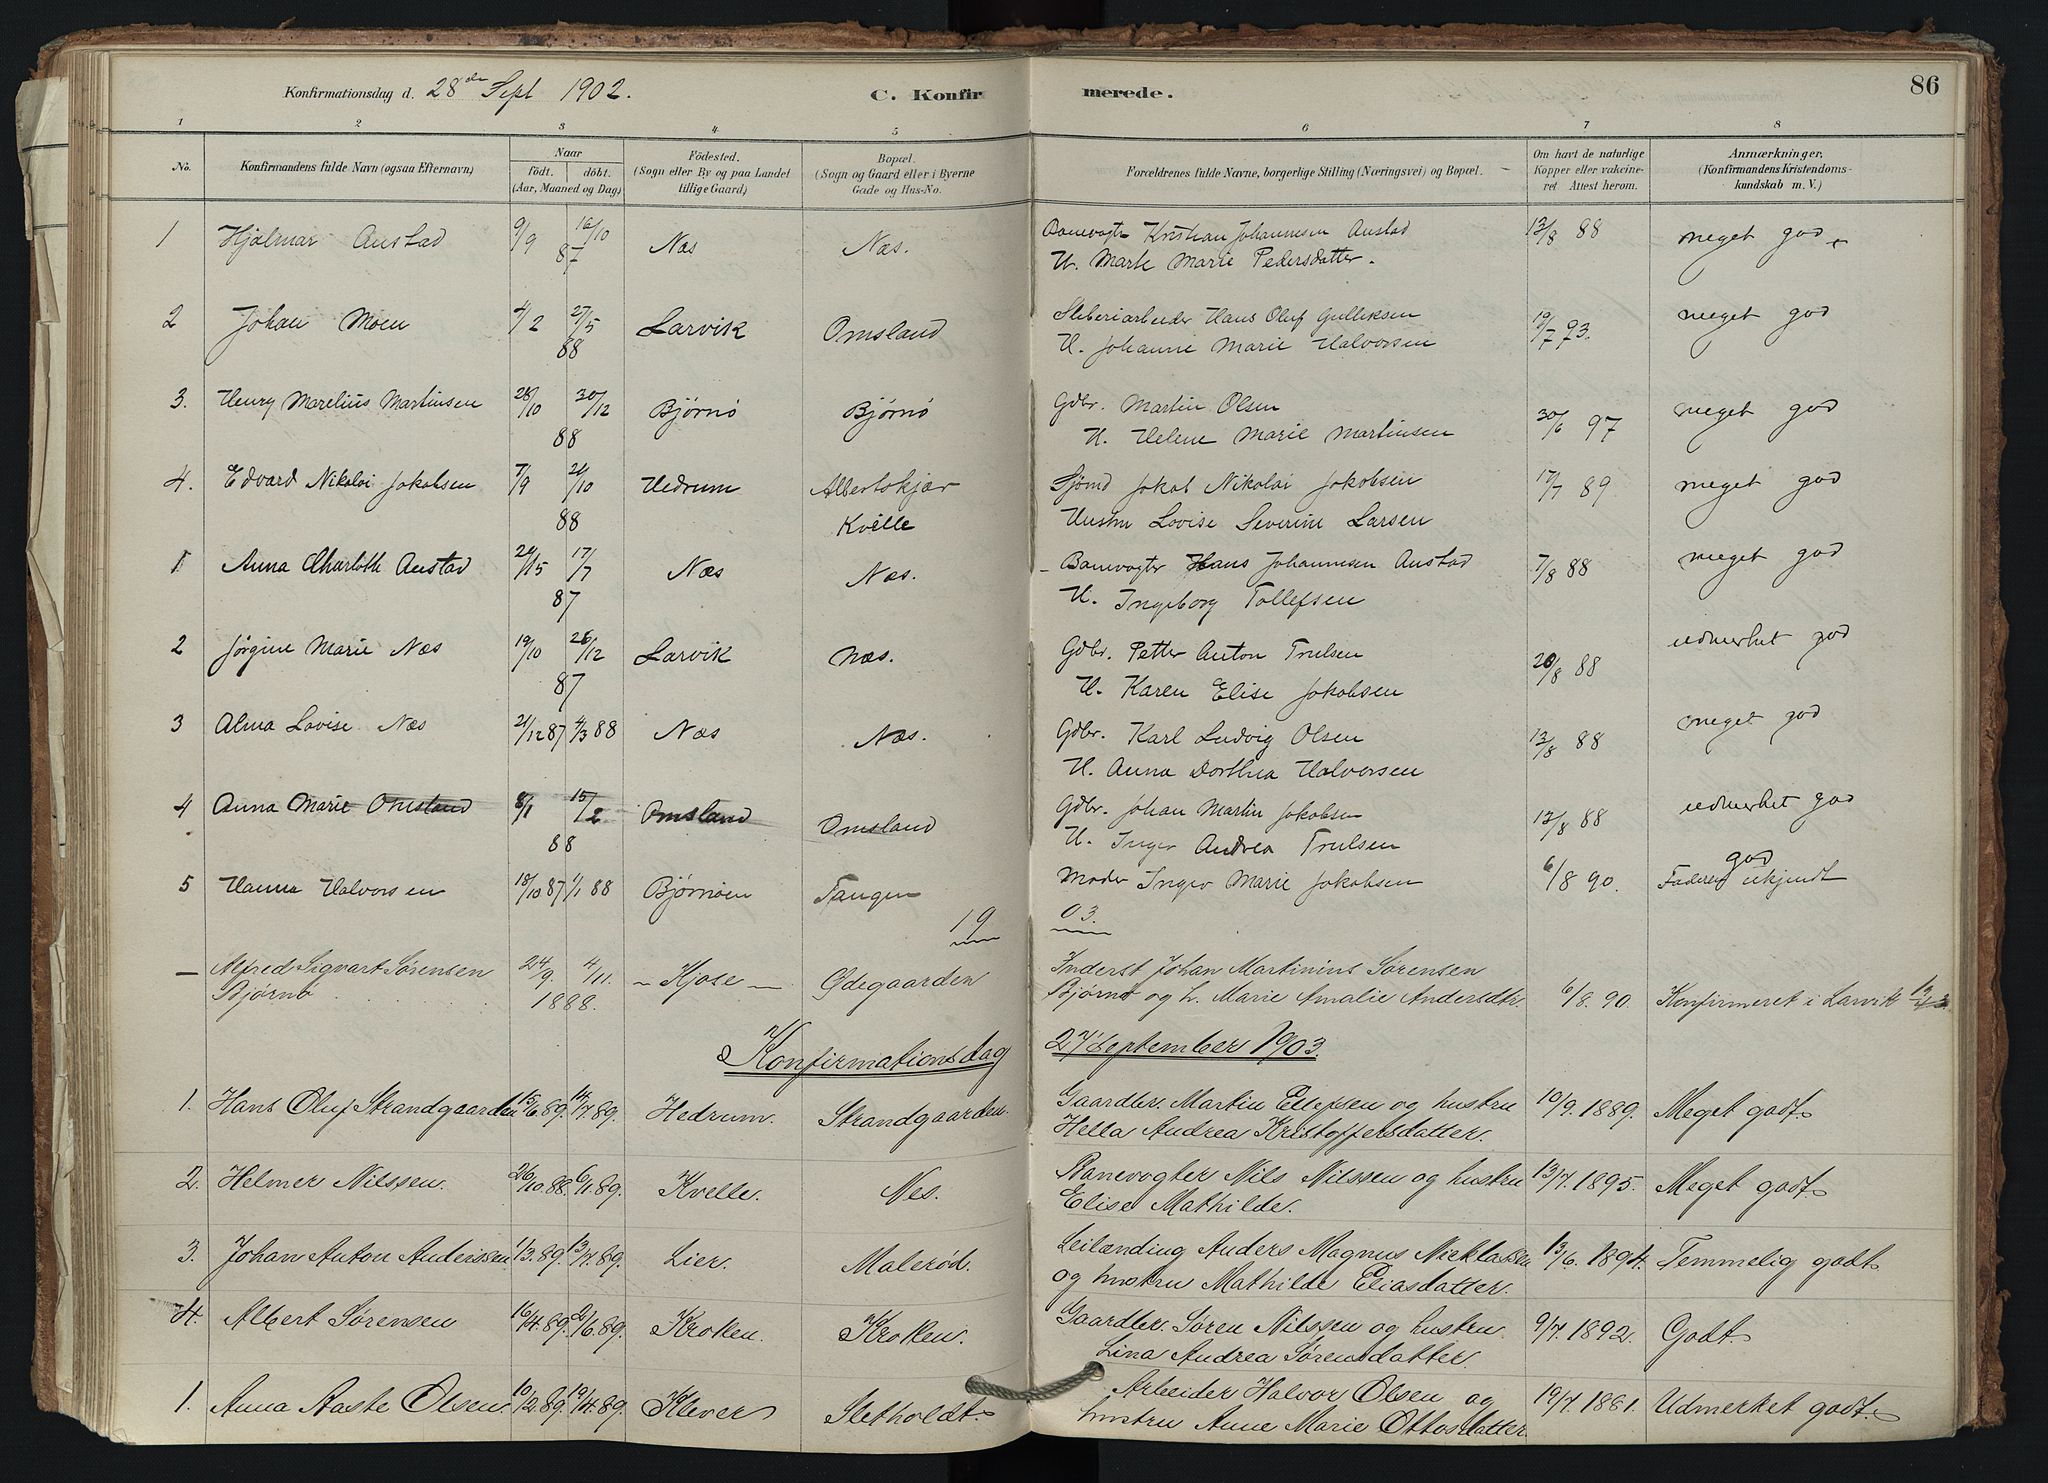 Konfirmationsdag d. 28de Sept 1902. C. Konfirmerede. 86
1 2 3 4 5 6 7 8
No. Konfirmandens fulde Navn (ogsaa Efternavn) Naar födt. döbt. (Aar, Maaned og Dag) Födested. (Sogn eller By og paa Landet tillige Gaard) Bopæl. (Sogn og Gaard eller i Byerne Gade og Hus-No. Forældrenes fulde Navne, borgerlige Stilling (Næringsvei) og Bopæl. Om havt de naturlige Kopper eller vakcineret Attest herom. Anmærkninger. (Konfirmandens Kristendomskundskab m. V.)
1 Hjalmar Austad 9/9 16/10 87 Næs Næs. Banevogter Kristian Johannesen Austad 13/8 88 meget god
H. Marte Marie Pedersdatter.
2 Johan Moen 4/2 27/5 88 Larvik Omsland Sliberiarbeider Hans Oluf Gulliksen 19/7 93. meget god
H. Johanne Marie Halvorsen
3. Henry Marelius Martinsen 28/10 30/12 88 Bjørnø Bjørnø Gdbr. Martin Olsen 30/6 97 meget god
H. Helene Marie Martinsen
4. Edvard Nikolai Jakobsen 7/9 21/10 88 Hedrum Albertskjær Sjømd Jakob Nikolai Jakobsen 17/7 89. meget god
Kvelle Hustru Lovise Severine Larsen
1 Anna Charloth Austad 17/7 87 Næs Næs. Banevogter Hans Johannesen Austad 7/8 88 meget god
H. Ingeborg Tollefsen
2 Jørgine Marie Næs 19/10 26/12 87 Larvik Næs. Gdbr. Petter Anton Trulsen 20/8 88 udmerket god
H. Karen Elise Jakobsen
3 Alma Lovise Næs 21/12 87 4/3 88 Næs Næs. Gdbr. Karl Ludvig Olsen 13/8 88 meget god
H. Anna Dorthea Halvorsen
4 Anna Marie Omsland 8/1 15/2 88 Omsland Omsland Gdbr. Johan Martin Jakobsen 12/8 88 udmerket god
H. Inger Andrea Trulsen
5 Hanna Halvorsen 18/10 87 1/1 88 Bjørnøen Tangen Moder Inger Marie Jakobsen 6/8 90. god
Faderen ukjendt
19 03.
— Alfred Sigvart Sørensen 24/9. 4/11. 1888. – Kjose – Ødegaarden Inderst Johan Martinius Sørensen
Bjørnø Bjørnø og h. Marie Amalie Andersdtr. 6/8. 90. Konfirmeret i Larvik
Konfirmationsdag 27 September 1903.
1. Hans Oluf Strandgaarden 15/6.89. 14/7.89. Hedrum. Strandgaarden. Gaardbr. Martin Ellefsen og hustru 10/9. 1889. Meget godt
Hella Andrea Kristoffersdatter.
2. Helmer Nilssen. 26/10.88. 6/1.89. Kvelle. Nes. Banevogter Nils Nilssen og hustru 13/7. 1895. Meget godt
Elise Mathilde.
3. Johan Anton Anderssen. 1/3.89. 13/7.89. Lier. Malerød. Leilænding Anders Magnus Nicklassen 13/6. 1894. Temmelig godt
og hustru Mathilde Eliasdatter.
4. Albert Sørensen 16/4.89. 2/6.89. Kroken. Kroken. Gaardbr. Søren Nilssen og hustru 9/7. 1892. Godt.
Lina Andrea Sørensdatter.
1. Anna Aaste Olsen. 10/2.89. 19/4.89. Klever Sletholdt. Arbeider Halvor Olsen og 19/7. 1881. Udmerket godt.
hustru Anne Marie Ottosdatter